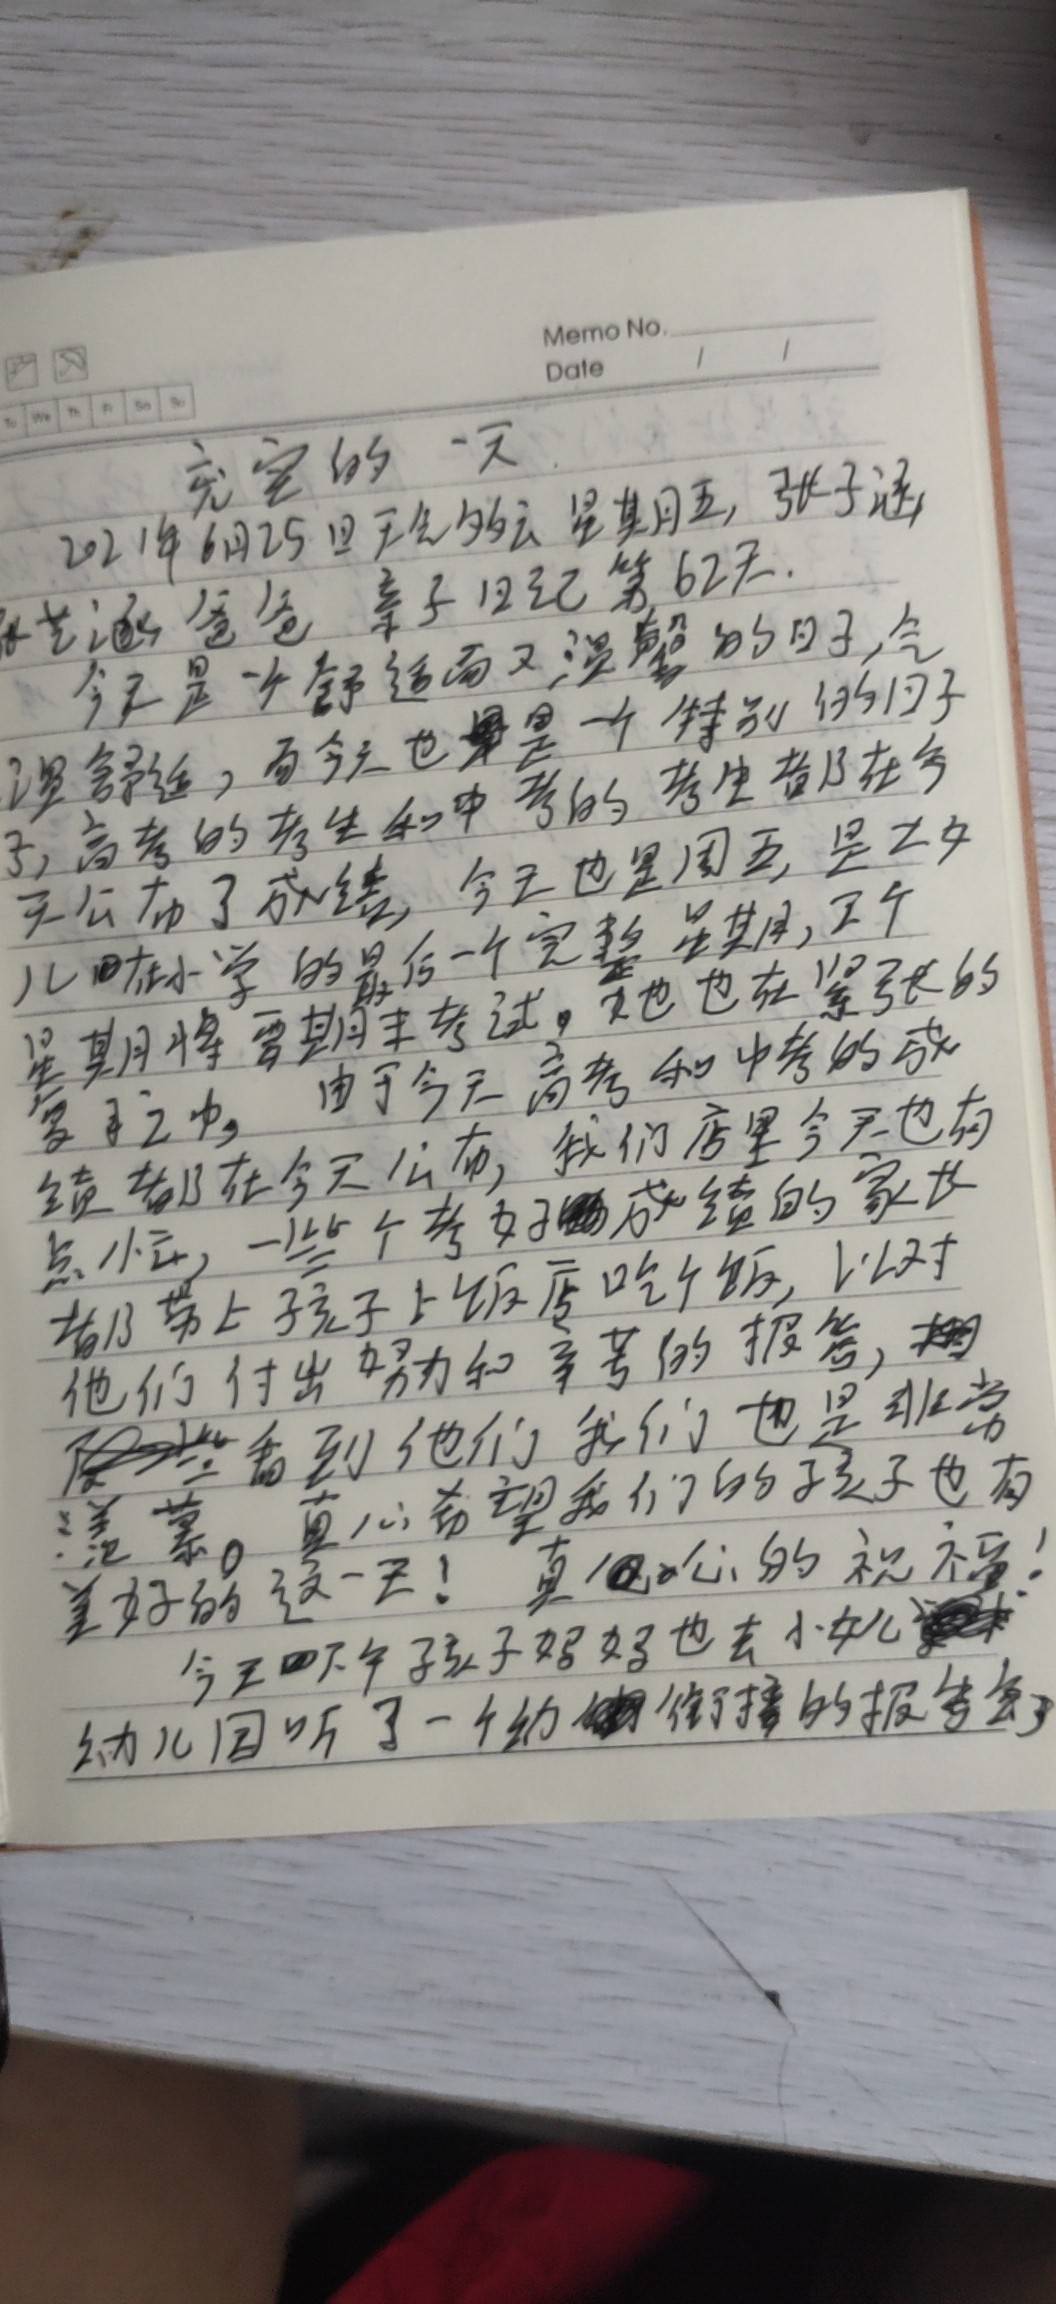 Memo No.
Date / /
Tu We Th Fr Sa Su
充实的一天
2021年6月25日天气多云 星期五, 张子涵,
张艺涵爸爸 亲子日记第62天.
今天是一个舒适而又温馨的日子,气
温舒适,而今天也是一个特别的日子
子,高考的考生和中考的考生都在今
天公布了成绩,今天也是周五,是大女
儿在小学的最后一个完整星期,下个
星期将要期末考试。她也在紧张的
复习之中。由于今天高考和中考的成
绩都在今天公布,我们店里今天也有
点小忙,一些个考好成绩的家长
都带上孩子上饭店吃个饭,以对
他们付出努力和辛苦的报答,
看到他们我们也是非常
羡慕。真心希望我们的孩子也有
美好的这一天! 真心的祝福!
今天下午孩子妈妈也去小女儿
幼儿园听了一个幼衔接的报告会,